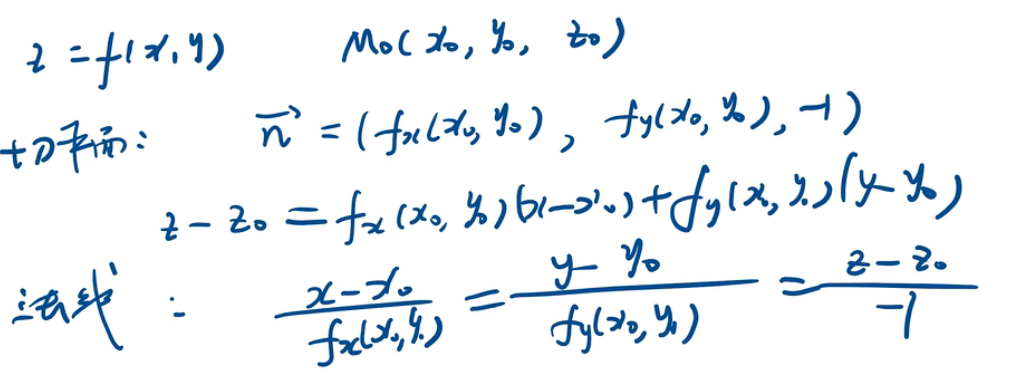 z = f(x, y)    M₀(x₀, y₀, z₀)
切平面: n⃗ = (fₓ(x₀, y₀), f_y(x₀, y₀), -1)
z - z₀ = fₓ(x₀, y₀)(x - x₀) + f_y(x₀, y₀)(y - y₀)
法线: (x - x₀)/(fₓ(x₀, y₀)) = (y - y₀)/(f_y(x₀, y₀)) = (z - z₀)/(-1)